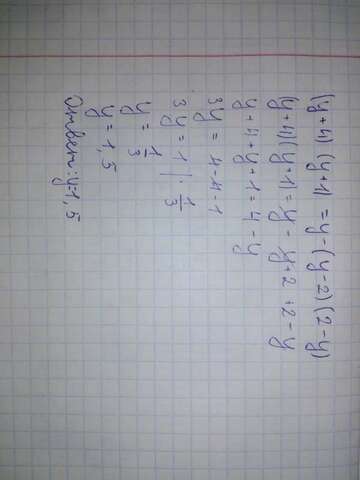 (y+4)(y+1)=y-(y-2)(2-y)
(y+4)(y+1)=y-y+2+2-y
y+4+y+1=4-y
3y=4-4-1
3y=1 | · 1/3
y=1/3
y=1,5
Ответ: y=1,5